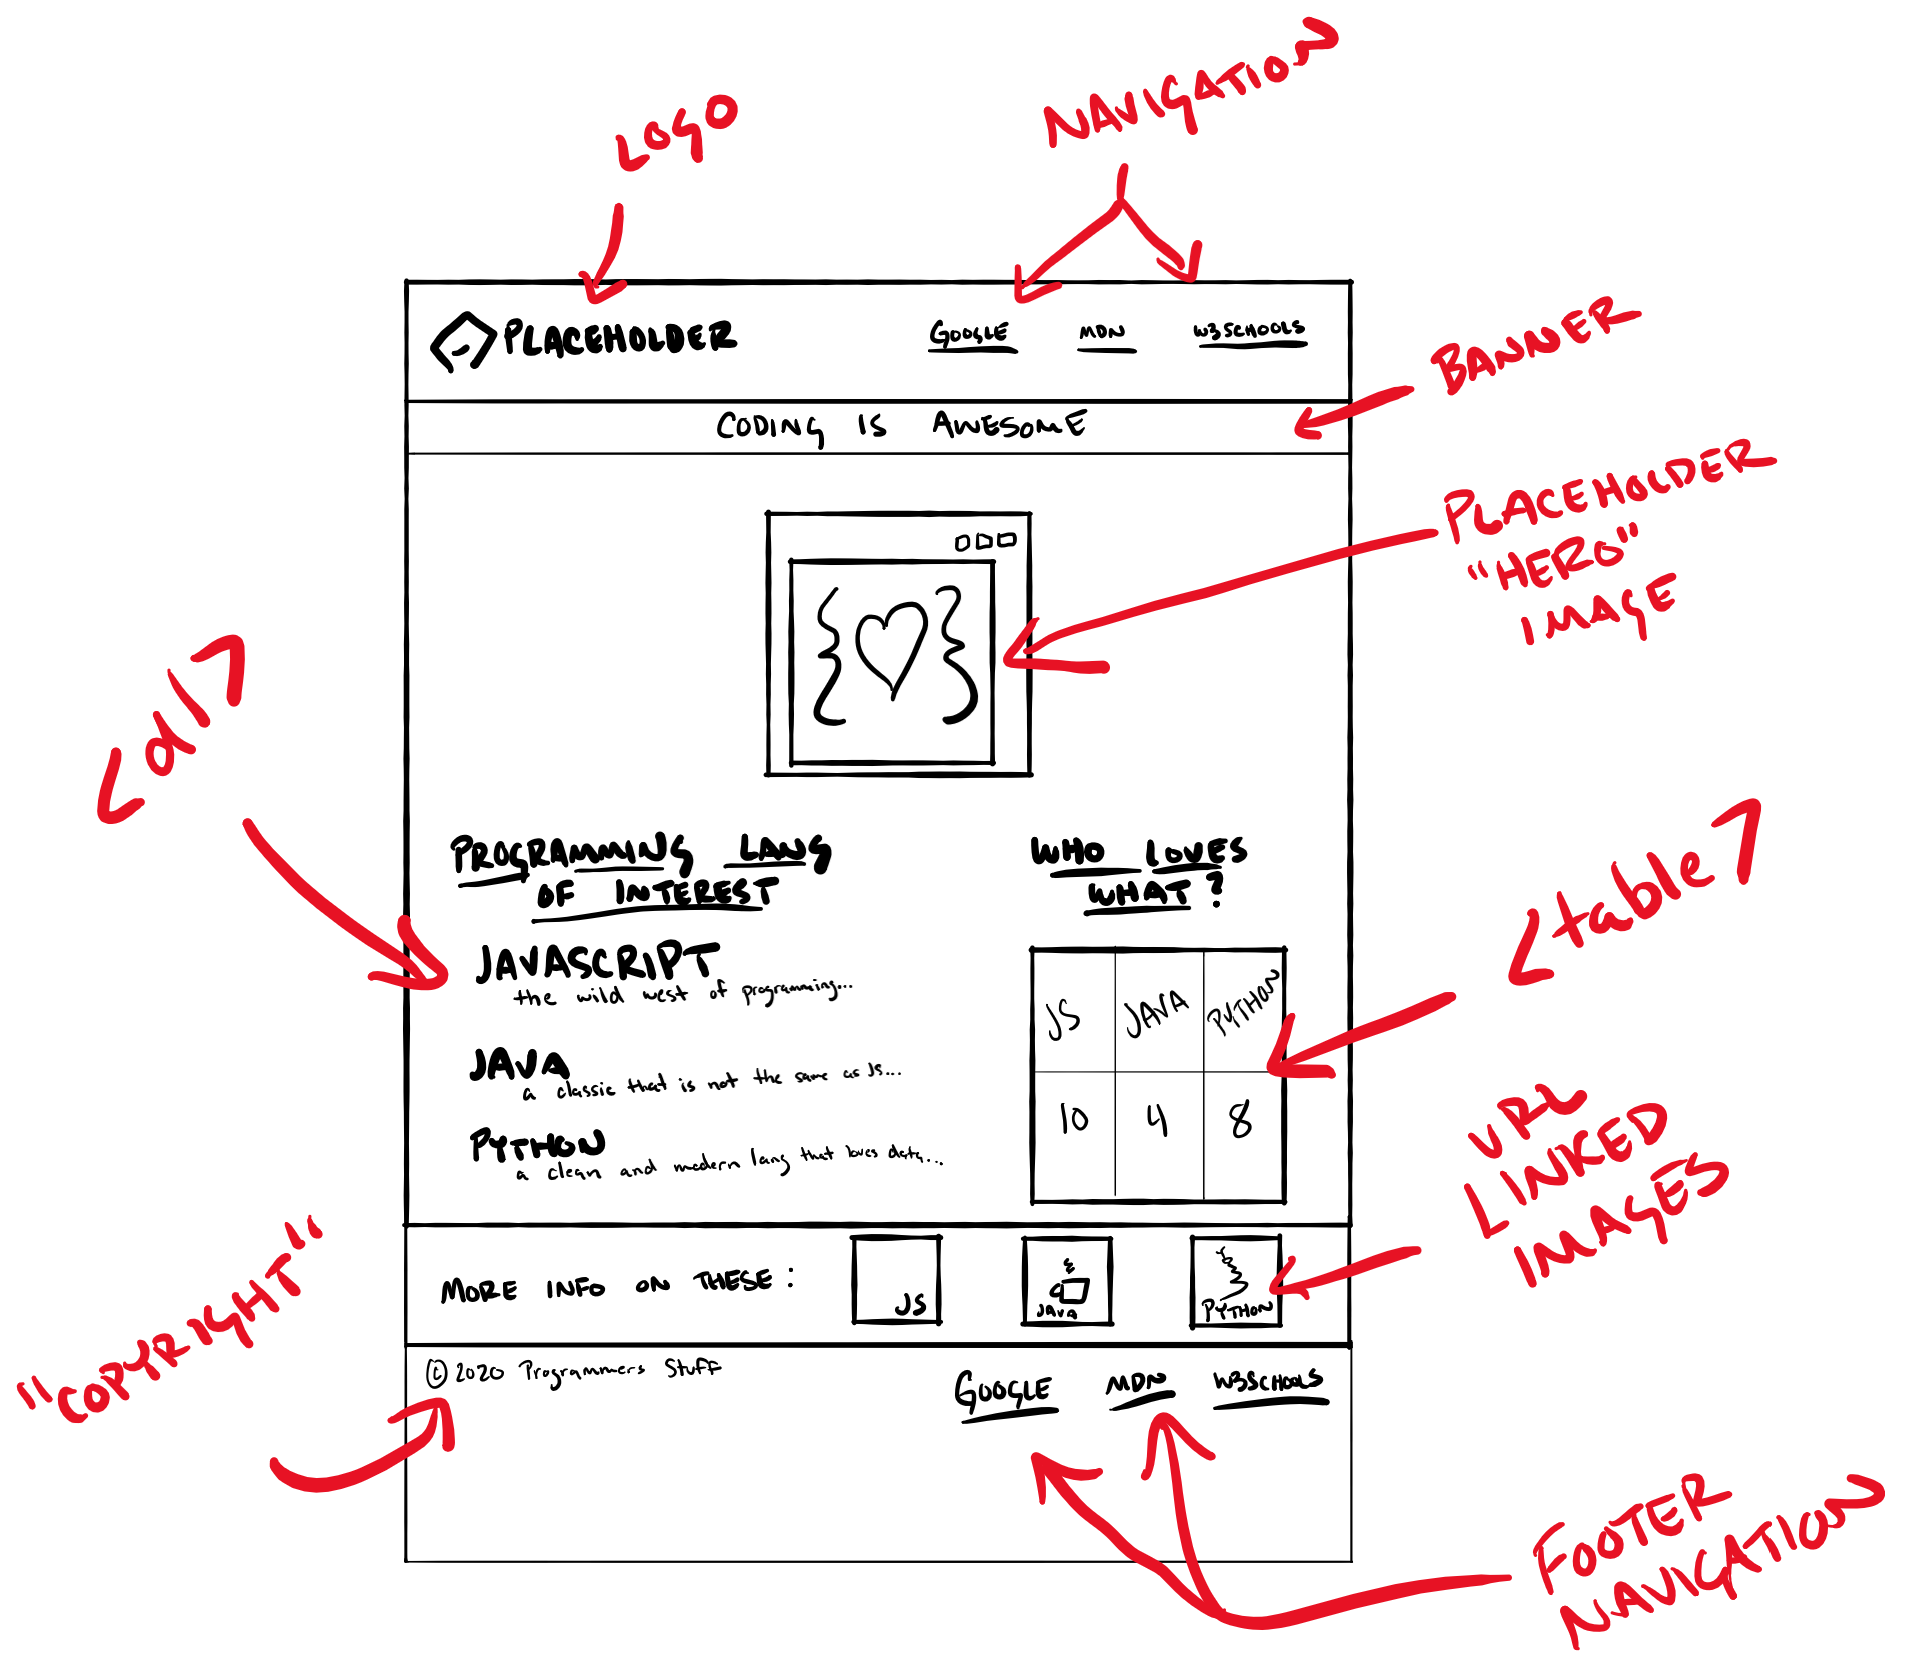 LOGO
NAVIGATION
PLACEHOLDER
GOOGLE MDN W3SCHOOLS
BANNER
CODING IS AWESOME
PLACEHOLDER
"HERO"
IMAGE
{ }
<dl>
PROGRAMMING LANG
OF INTEREST
JAVASCRIPT
the wild west of programming...
JAVA
a classic that is not the same as JS...
PYTHON
a clean and modern lang that loves data...
WHO LOVES
WHAT?
<table>
JS JAVA PYTHON
10 4 8
URL
LINKED
IMAGES
MORE INFO ON THESE:
JS
JAVA
PYTHON
"COPYRIGHT"
© 2020 Programmers Stuff
GOOGLE MDN W3SCHOOLS
FOOTER
NAVIGATION